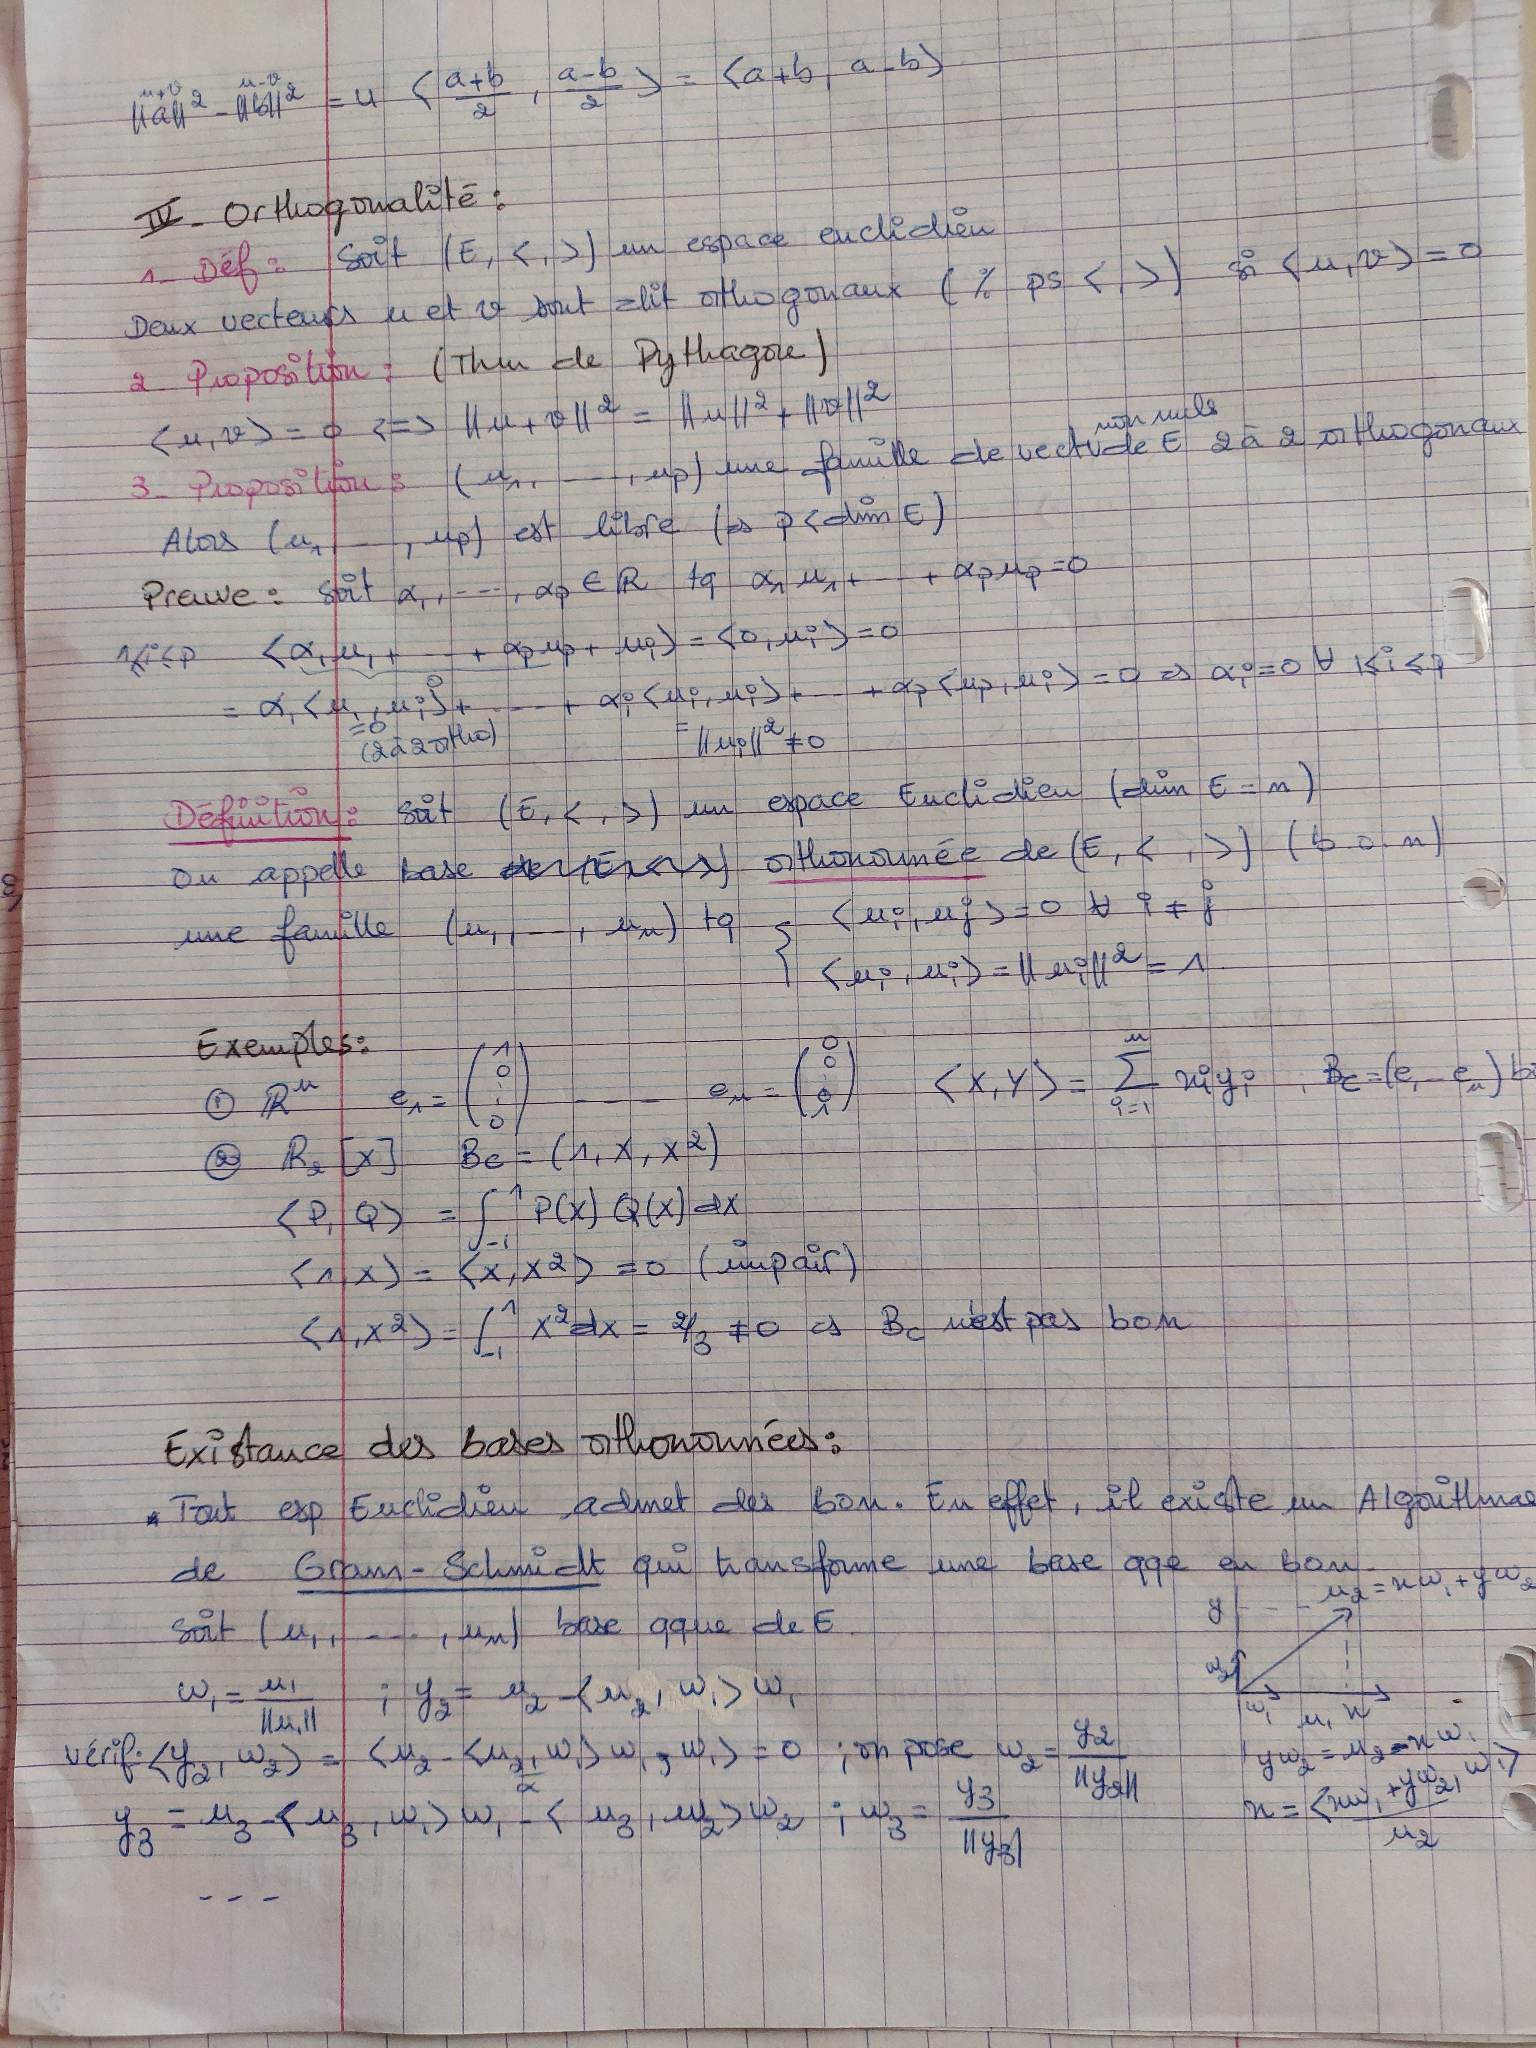 u+v u-v
||a||² - ||b||² = 4 < a+b/2 , a-b/2 > = <a+b, a-b>
IV - Orthogonalité :
1- Déf : Soit (E, < , >) un espace euclidien
Deux vecteurs u et v sont dit orthogonaux (% ps < , >) si <u, v> = 0
2- Proposition : (Thm de Pythagore)
<u, v> = 0 <=> ||u + v||² = ||u||² + ||v||²
non nuls
3- Proposition : (u1, ---, up) une famille de vect de E 2 à 2 orthogonaux
Alors (u1, ---, up) est libre (=> p < dim E)
Preuve : Soit α1, ---, αp ∈ R tq α1 u1 + --- + αp up = 0
1≤i≤p <α1 u1 + --- + αp up + ui> = <0, ui> = 0
= α1 <u1, ui> + --- + αi <ui, ui> + --- + αp <up, ui> = 0 => αi = 0 ∀ 1≤i≤p
=0 (2 à 2 ortho) = ||ui||² ≠ 0
Définition : Soit (E, < , >) un espace Euclidien (dim E = n)
on appelle base orthonormée de (E, < , >) (b o n)
une famille (u1, ---, un) tq { <ui, uj> = 0 ∀ i ≠ j
<ui, ui> = ||ui||² = 1
Exemples :
① R^n e1 = (1 0 ⋮ 0) ---- en = (0 0 ⋮ 0 1) <X, Y> = Σ_{i=1}^{n} xi yi , Bc = (e1 -- en) b
② R2[X] Bc = (1, X, X²)
<P, Q> = ∫_{-1}^{1} P(X) Q(X) dX
<1, X> = <X, X²> = 0 (impair)
<1, X²> = ∫_{-1}^{1} X² dX = 2/3 ≠ 0 => Bc n'est pas bon
Existance des bases orthonormées :
* Tout esp Euclidien admet des bon. En effet, il existe un Algorithme
de Gram-Schmidt qui transforme une base qqe en bon.
u2 = x w1 + y w2
y
Soit (u1, ---, un) base qque de E.
w2
w1 = u1/||u1|| ; y2 = u2 - <u2, w1> w1
w1 u1 x
Vérif : <y2, w2> = <u2 - <u2, w1> w1, w1> = 0 ; on pose w2 = y2/||y2||
y w2 = u2 - x w1
y3 = u3 - <u3, w1> w1 - <u3, w2> w2 ; w3 = y3/||y3||
x = <x w1 + y w2, w1>
u2
---